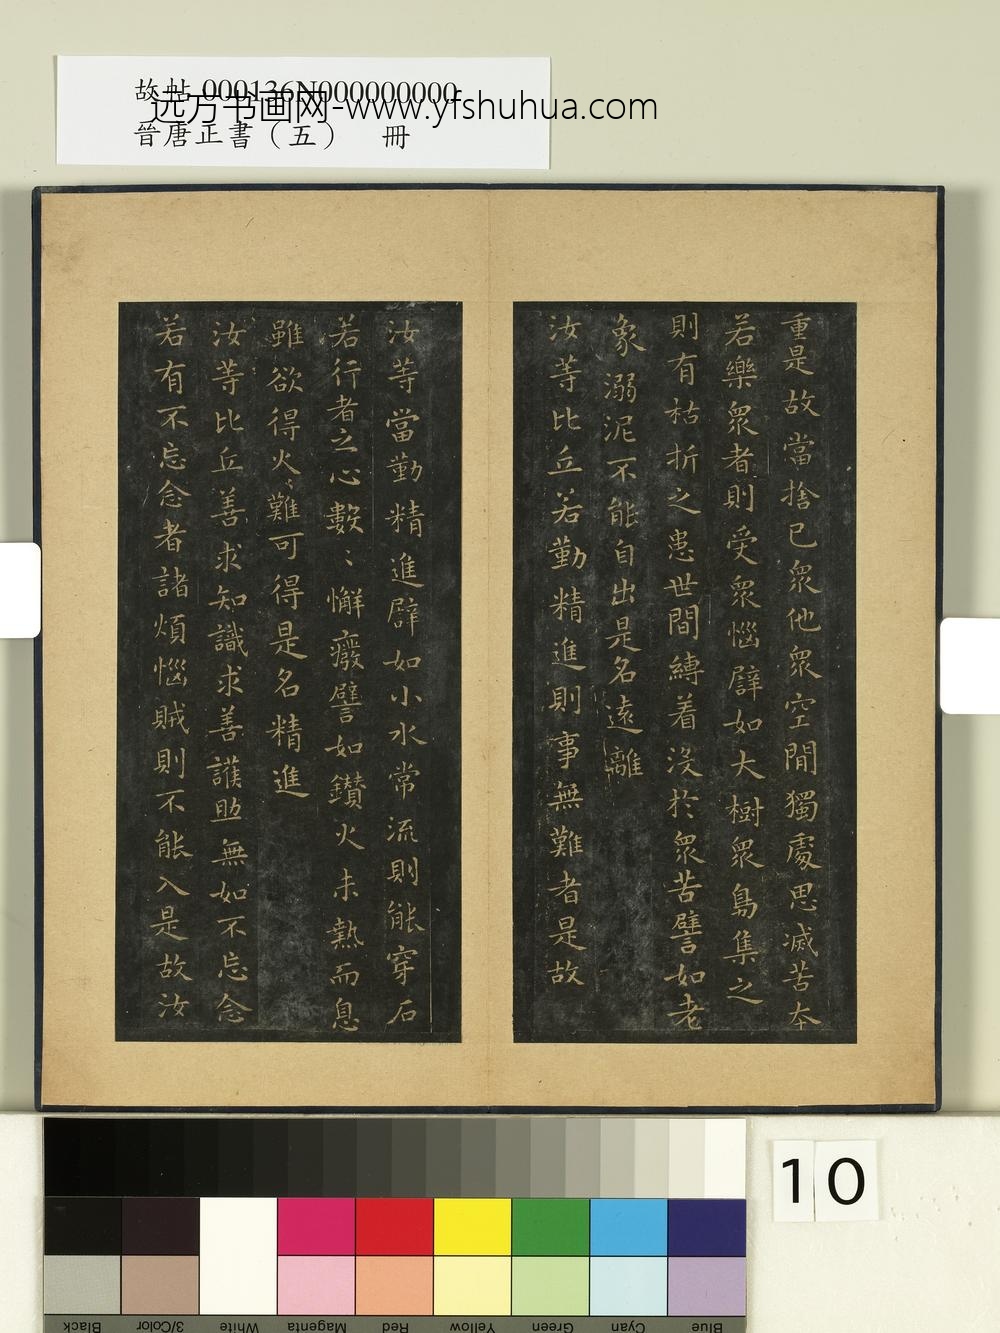 故帖 000136N000000000
远方书画网-www.yfshuhua.com
晉唐正書（五） 冊
重是故當捨己衆他衆空閒獨處思滅苦本
若樂衆者則受衆惱譬如大樹衆鳥集之
則有枯折之患世間縛着没於衆苦譬如老
象溺泥不能自出是名遠離
汝等比丘若勤精進則事無難者是故
汝等當勤精進譬如小水常流則能穿石
若行者之心數〻懈癈譬如鑚火未熱而息
雖欲得火〻難可得是名精進
汝等比丘善求知識求善護助無如不忘念
若有不忘念者諸煩惱賊則不能入是故汝
10
Black
3/Color
White
Magenta
Red
Yellow
Green
Cyan
Blue